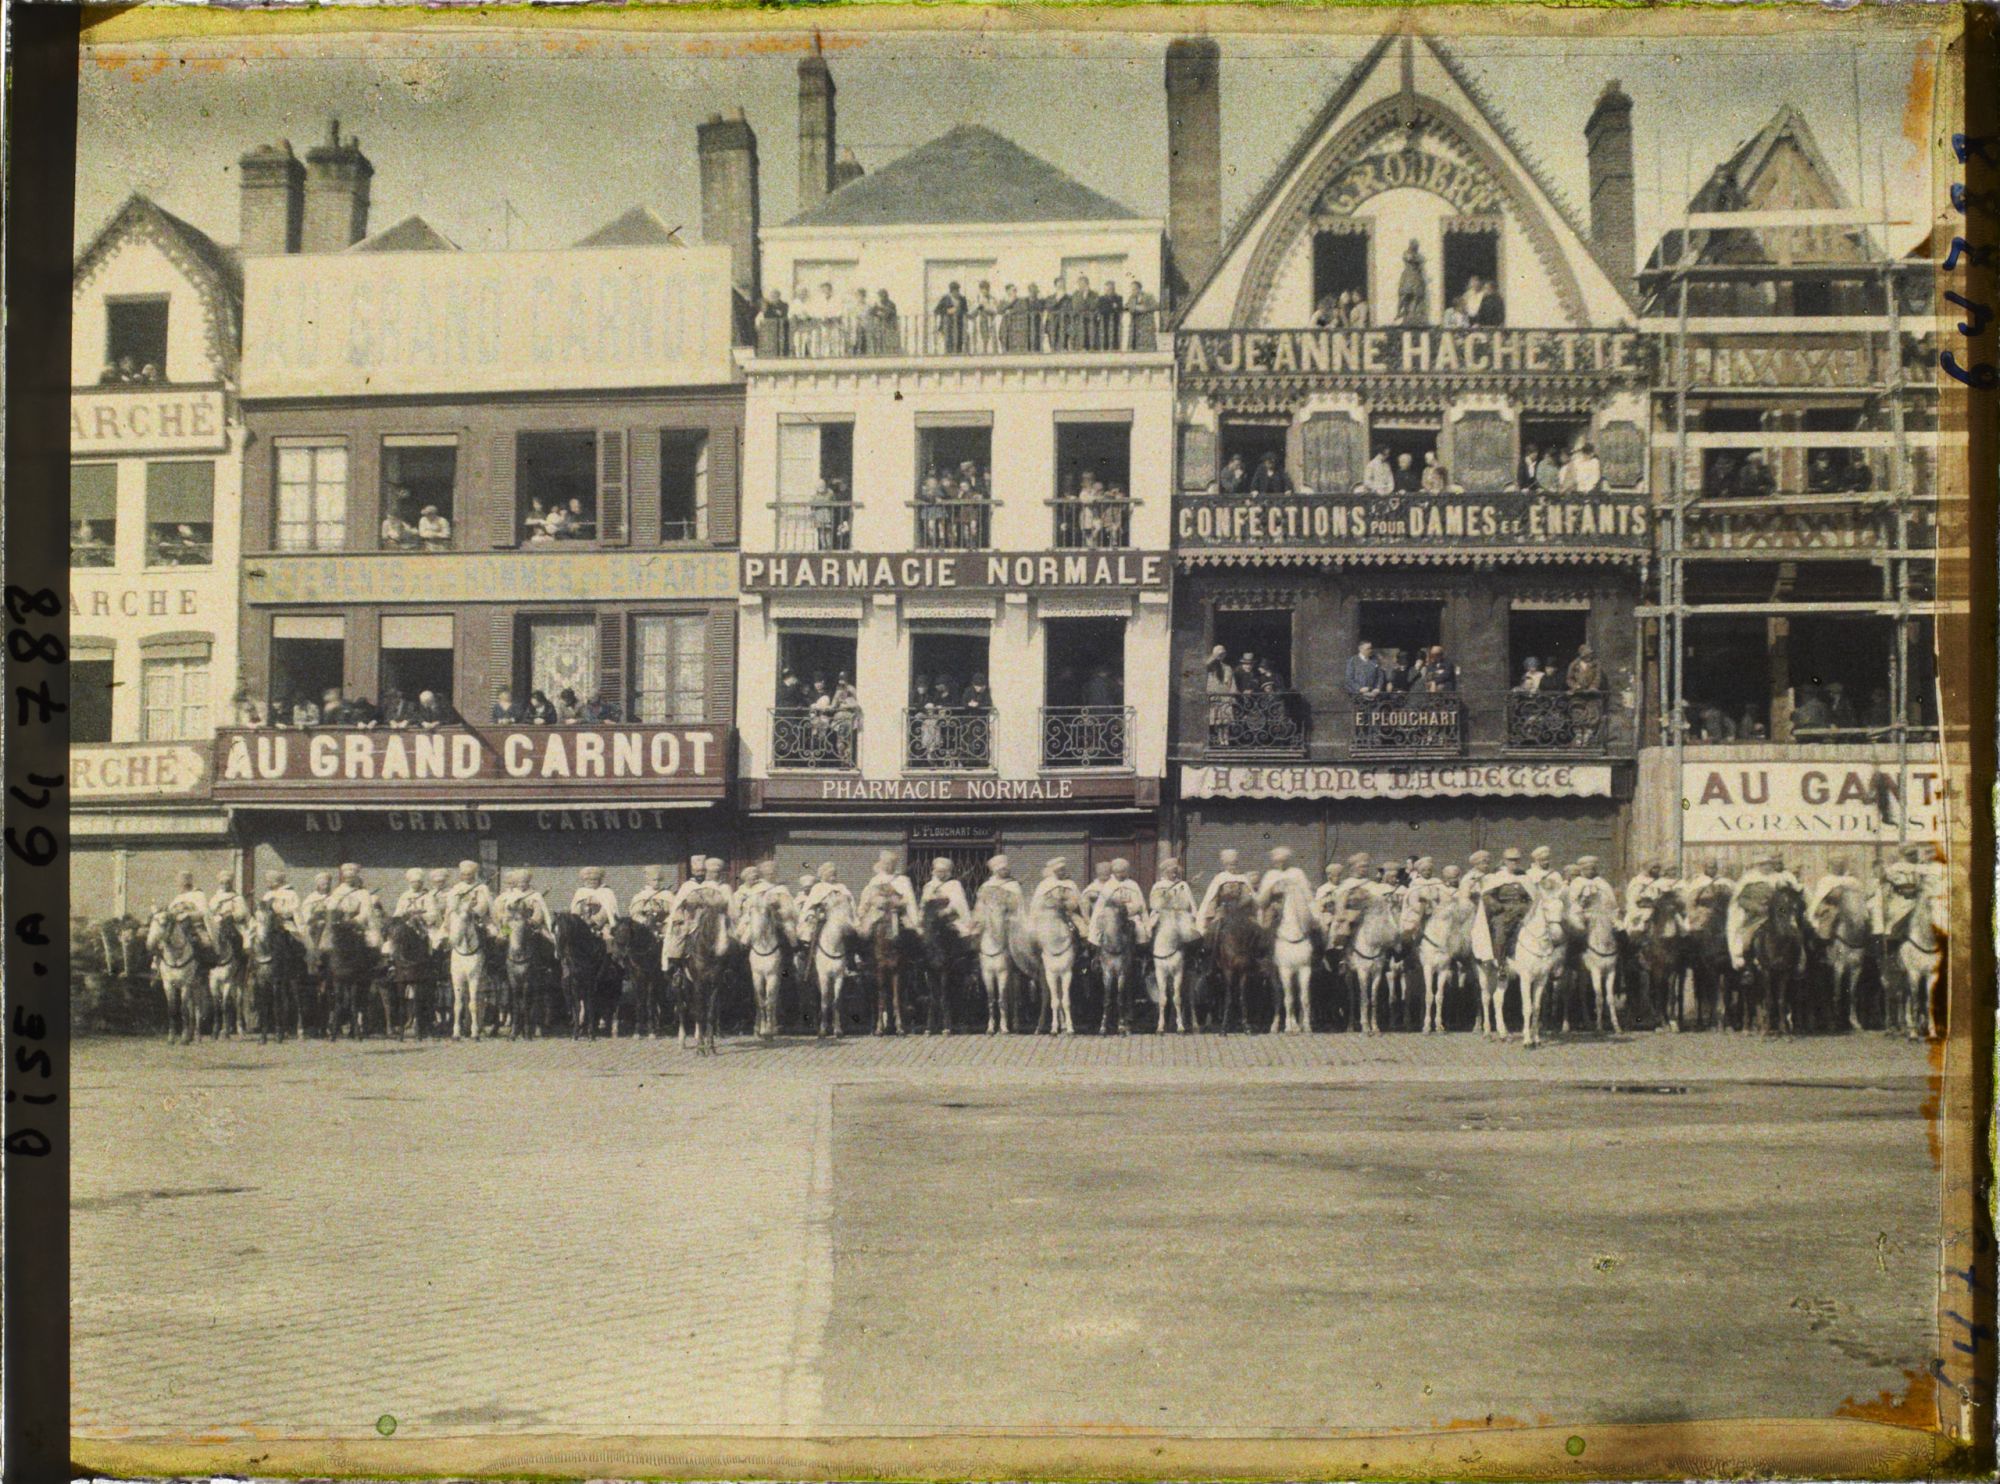 ARCHÉ
ARCHE
RCHÉ
AU GRAND CARNOT
VÊTEMENTS POUR HOMMES ET ENFANTS
AU GRAND CARNOT
AU GRAND CARNOT
PHARMACIE NORMALE
PHARMACIE NORMALE
PLOUCHART
GROBERT
A JEANNE HACHETTE
CONFECTIONS POUR DAMES ET ENFANTS
E. PLOUCHART
A JEANNE HACHETTE
AU GANT
AGRANDISSE
OISE.A 64 788
64788